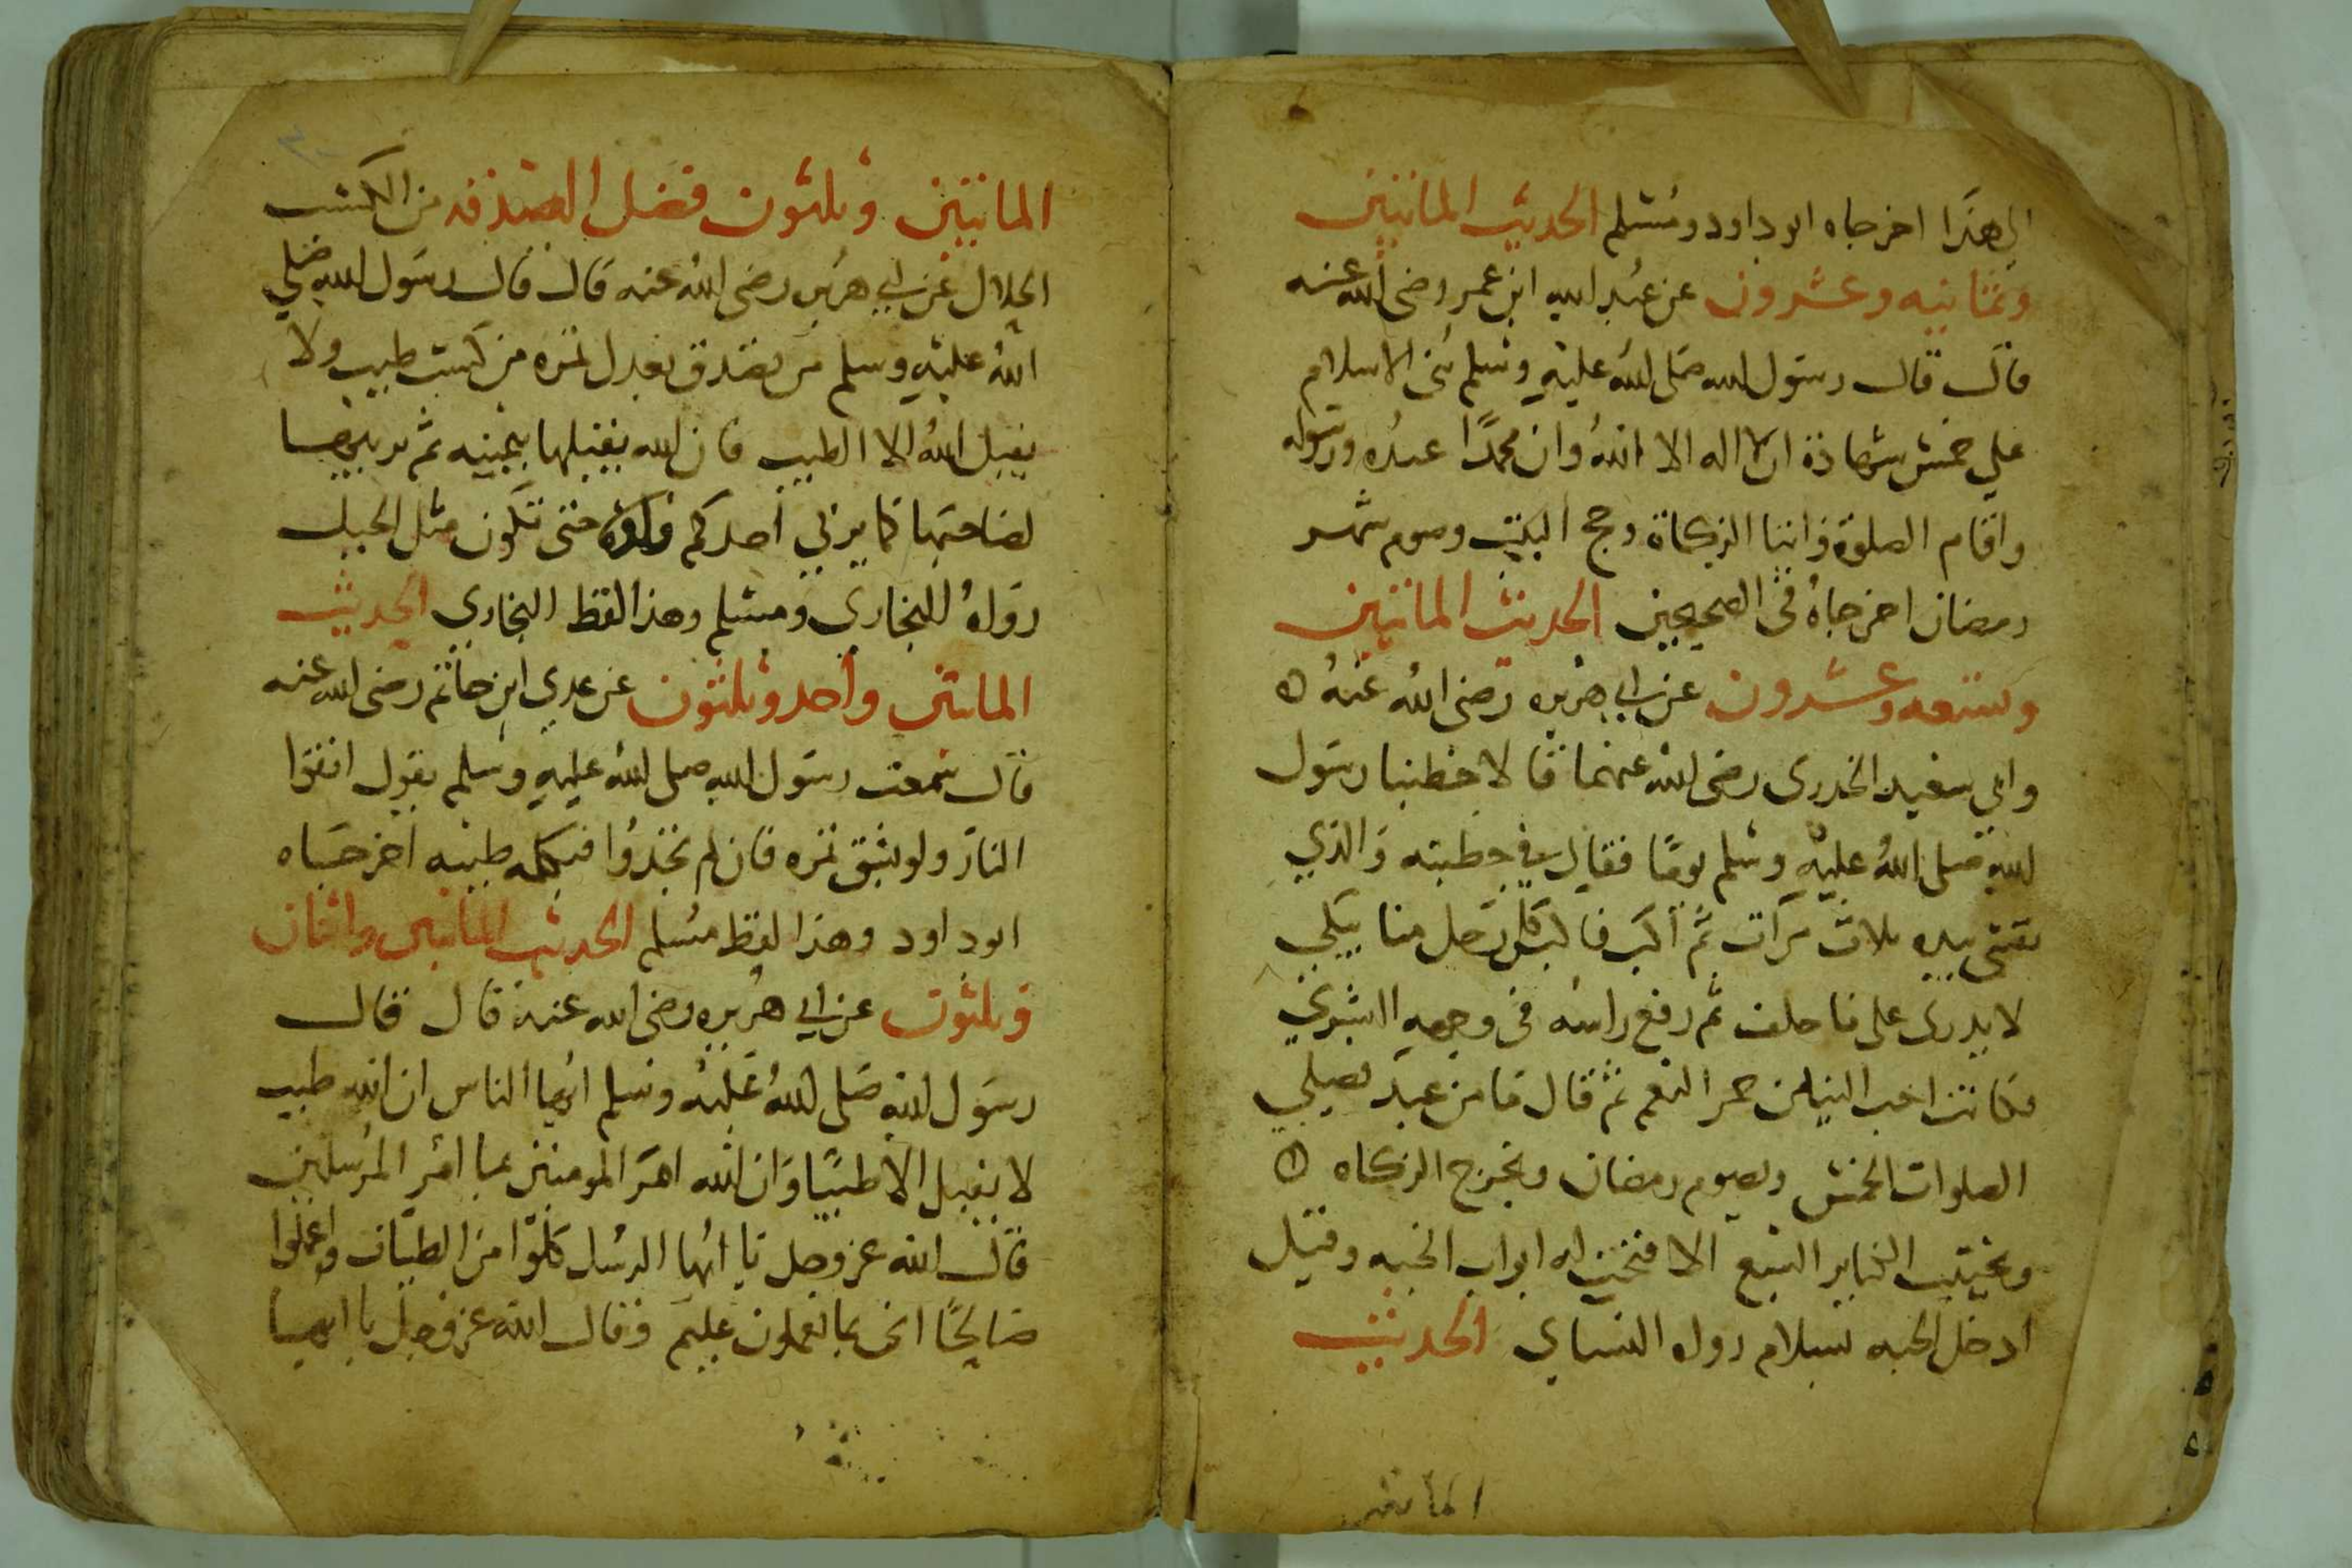 الي هذا اخرجاه ابو داود ومسلم الحديث الماتيين
وثمانيه وعشرون عن عبد الله ابن عمر رضى الله عنه
قال قال رسول الله صلى الله عليه وسلم بنى الاسلام
علي خمس شهادة ان لا اله الا الله وان محمدًا عبده ورسوله
واقام الصلوة وايتا الزكاة وحج البيت وصوم شهر
رمضان اخرجاه في الصحيحين الحديث الماتيين
وتسعه وعشرون عن ابي هريره رضى الله عنه ه
وابي سعيد الخدرى رضى الله عنهما قالا خطبنا رسول
الله صلى الله عليه وسلم يومًا فقال في خطبته والذي
نفسى بيده ثلاث مرات ثم أكب فاكب كل رجل منا يبكي
لا يدرى على ما حلف ثم رفع راسه فى وجهه البشري
فكانت احب الينا من حمر النعم ثم قال ما من عبد يصلي
الصلوات الخمس ويصوم رمضان ويخرج الزكاه ه
ويجتنب الكباير السبع الا فتحت له ابواب الجنه وقيل
ادخل الجنه بسلام رواه النساي الحديث
الماتين
الماتيين وثلثون فضل الصدقه من الكسب
الحلال عن ابي هريره رضى الله عنه قال قال رسول الله صلي
الله عليه وسلم من تصدق بعدل تمره من كسب طيب ولا
يقبل الله الا الطيب فان الله يقبلها بيمينه ثم يربيها
لصاحبها كما يربي أحدكم فلوه حتى تكون مثل الجبل
رواه البخاري ومسلم وهذا لفظ البخاري الحديث
الماتين واحد وثلثون عن عدي ابن حاتم رضى الله عنه
قال سمعت رسول الله صلى الله عليه وسلم يقول اتقوا
النار ولو بشق تمره فان لم تجدوا فبكلمه طيبه اخرجاه
ابو داود وهذا لفظ مسلم الحديث الماتيين واثنان
وثلثون عن ابي هريره رضى الله عنه قال قال
رسول الله صلى الله عليه وسلم ايها الناس ان الله طيب
لا يقبل الا طيبًا وان الله امر المومنين بما امر المرسلين
قال الله عز وجل يا ايها الرسل كلوا من الطيبات واعملوا
صالحًا انى بما تعملون عليم وقال الله عز وجل يا ايها